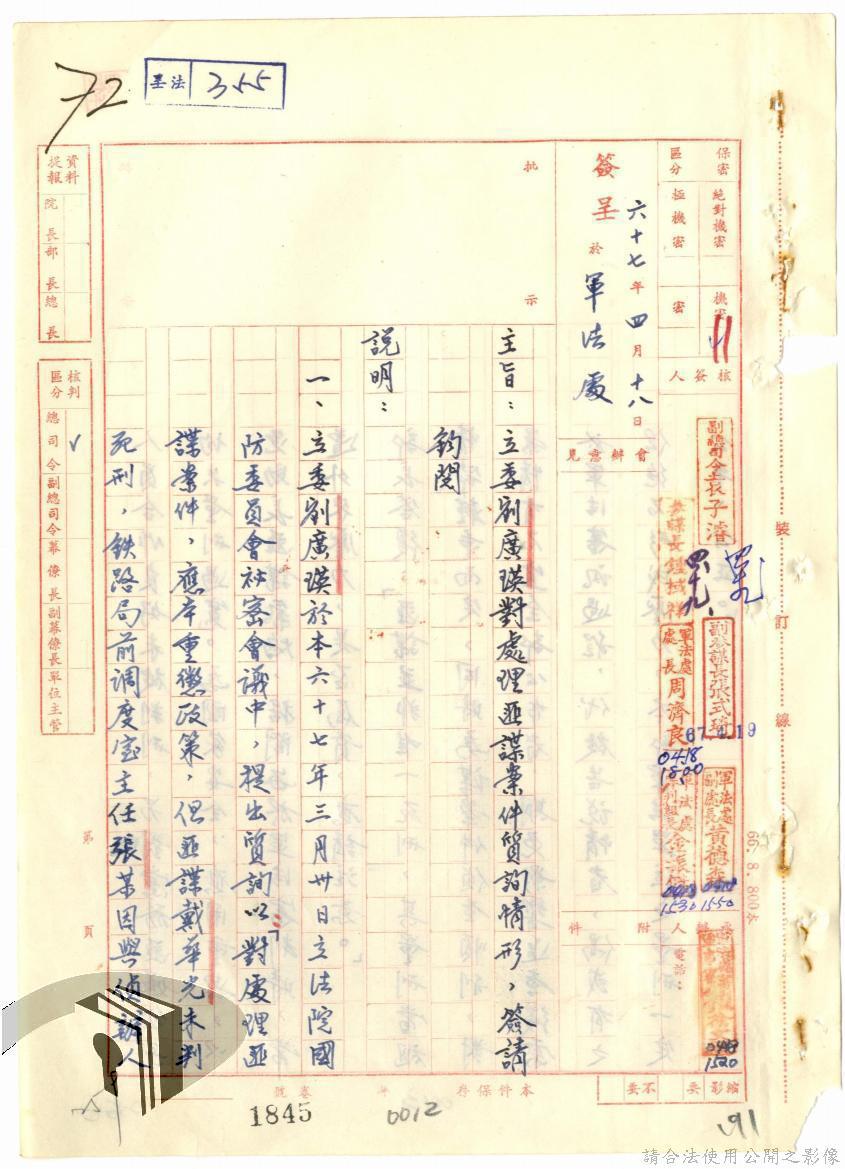 72
呈法 355
保密區分
絕對機密
極機密
機密
密
簽呈 六十七年四月十八日
於 軍法處
批示
主旨：立委劉廣瑛對處理匪諜案件質詢情形，簽請
鈞閱
說明：
一、立委劉廣瑛於本六十七年三月卅日立法院國
防委員會祕密會議中，提出質詢以「對處理匪
諜案件，應本重懲政策，但匪諜戴華光未判
死刑，鉄路局前調度室主任張某因與偵辦人
核簽人
會辦意見
附件
副總司令
參謀長
副參謀長張式琦
67.4.19
軍法處處長周濟良
0418
1800
軍法處副處長黃德
0418
1550
軍法處
0418
1530
電話：
0418
1520
資料提報
院長
部長
總長
核判區分
總司令
副總司令
幕僚長
副幕僚長
單位主管
第
頁
裝訂線
66.8.800本
本件保存
年
卷
號
縮影
要
不要
1845
0012
191
請合法使用公開之影像